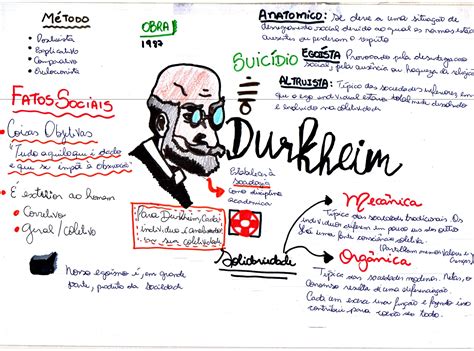 MÉTODO
• Positivista
• Explicativo
• Comparativo
• Evolucionista
OBRA
1987
ANATOMICO: Se deve a uma situação de
desregramento social devido ao qual as normas estão
ausentes ou perderam o respeito
SUICÍDIO
EGOÍSTA Provocado pela desintegração
social, pela ausência ou fraqueza de relações
ALTRUISTA: Típico das sociedades inferiores em
que o ego individual estava total mente dissolvido
e envolvido na coletividade
FATOS SOCIAIS
Coisas Objetivas
"Tudo aquilo que é dado
e que se impõe à observação"
É exterior ao homem
• Coercivo
• geral / coletivo
Nosso egoísmo é, em grande
parte, produto da sociedade
Durkheim
Estabelecer a
sociologia
como disciplina
acadêmica
Para Durkheim, cada
indivíduo é
sua coletividade
Solidariedade
Mecânica
Típica das sociedades tradicionais. Os
indivíduos diferem em pouco uns dos outros
Há uma forte consciência coletiva.
(Partilham mesmos valores e
Orgânica
Típica das sociedades modernas. Nelas, o
Consenso resulta de uma diferenciação.
Cada um exerce uma função e
contribui para coesão do todo.